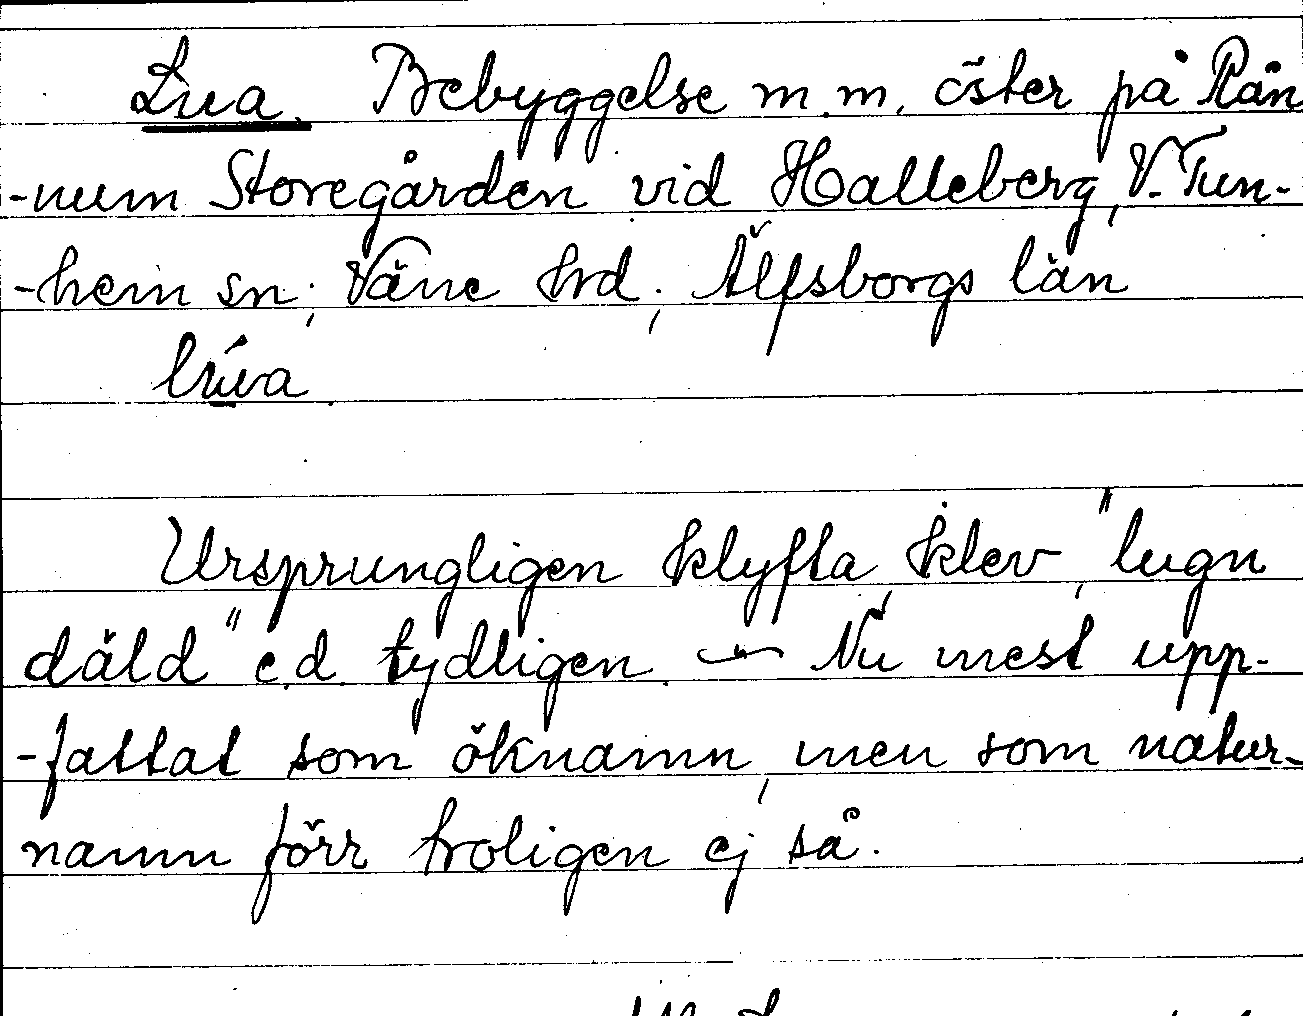 Lua. Bebyggelse m.m. öster på Rån
-num Storegården vid Halleberg, V. Tun-
-hem sn; Väne hrd; Älfsborgs län
lúva.
Ursprungligen klyfta, klev, "lugn
däld" e.d. tydligen. — Nu mest upp-
-fattat som öknamn, men som natur-
namn förr troligen ej så.